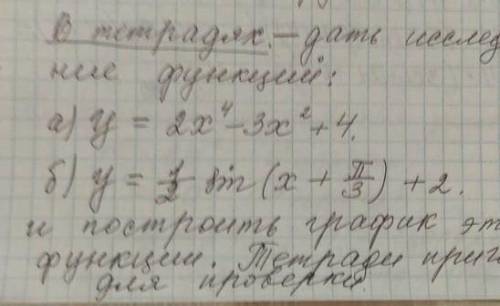 В тетрадях. – дать исслед
ние функций:
а) y = 2x⁴ - 3x² + 4.
б) y = 1/2 sin (x + π/3) + 2.
и построить график эт
функции. Тетради приг
для проверки.